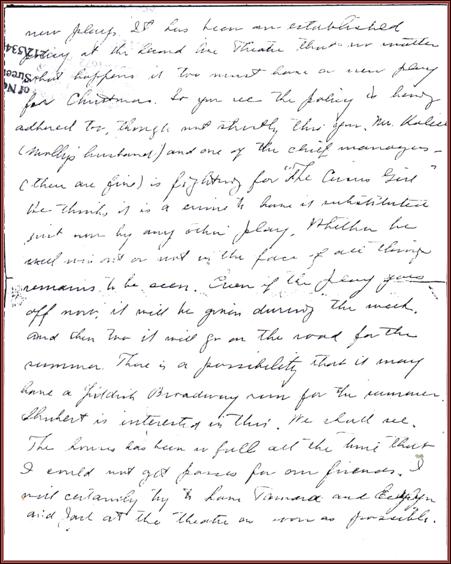 new plays. It has been an established
policy at the Second Ave Theatre that no matter
what happens it too must have a new play
for Christmas. So you see the policy is being
adhered to, though not strictly this year. Mr. Kalich
(Molly's husband) and one of the chief managers –
(there are five) is fighting for "The Circus Girl"
He thinks it is a crime to have it substituted
just now by any other play. Whether he
will win it or not in the face of all things
remains to be seen. Even if the play goes
off now, it will be given during the week.
And then too it will go on the road for the
summer. There is a possibility that it may
have a Yiddish Broadway run for the summer.
Shubert is interested in this. We shall see.
The house has been so full all the time that
I could not get passes for our friends. I
will certainly try to have Tamara and
and Jack at the theatre as soon as possible.